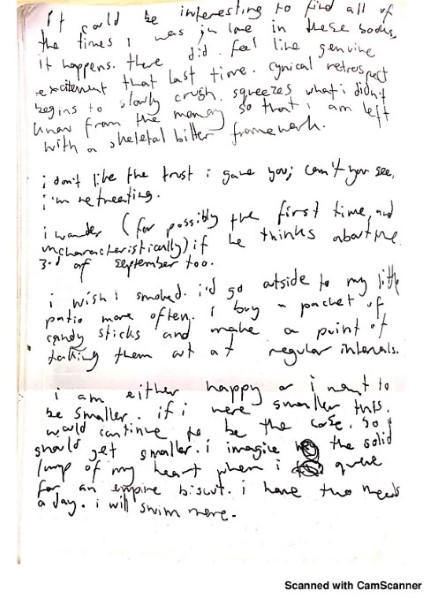 it could be interesting to find all of
the times i was in love in these books.
it happens. there did feel like genuine
excitement that last time. cynical retrospect
begins to slowly crush. squeezes what i didn't
know from the memory so that i am left
with a skeletal bitter framework.
i don't like the trust i gave you; can't you see,
i'm retreating.
i wonder (for possibly the first time, and
uncharacteristically) if he thinks about the
3rd of september too.
i wish i smoked. i'd go outside to my little
patio more often. i buy a packet of
candy sticks and make a point of
taking them out at regular intervals.
i am either happy or i want to
be smaller. if i were smaller this
would continue to be the case. so i
should get smaller. i imagine the solid
lump of my heart when i queue
for an empire biscuit. i have two meals
a day. i will swim more.
Scanned with CamScanner